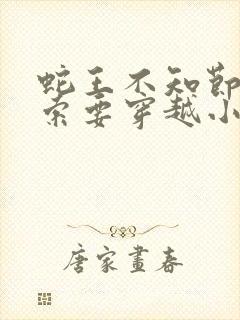 蛇王不知节
索要穿越小
唐家画春